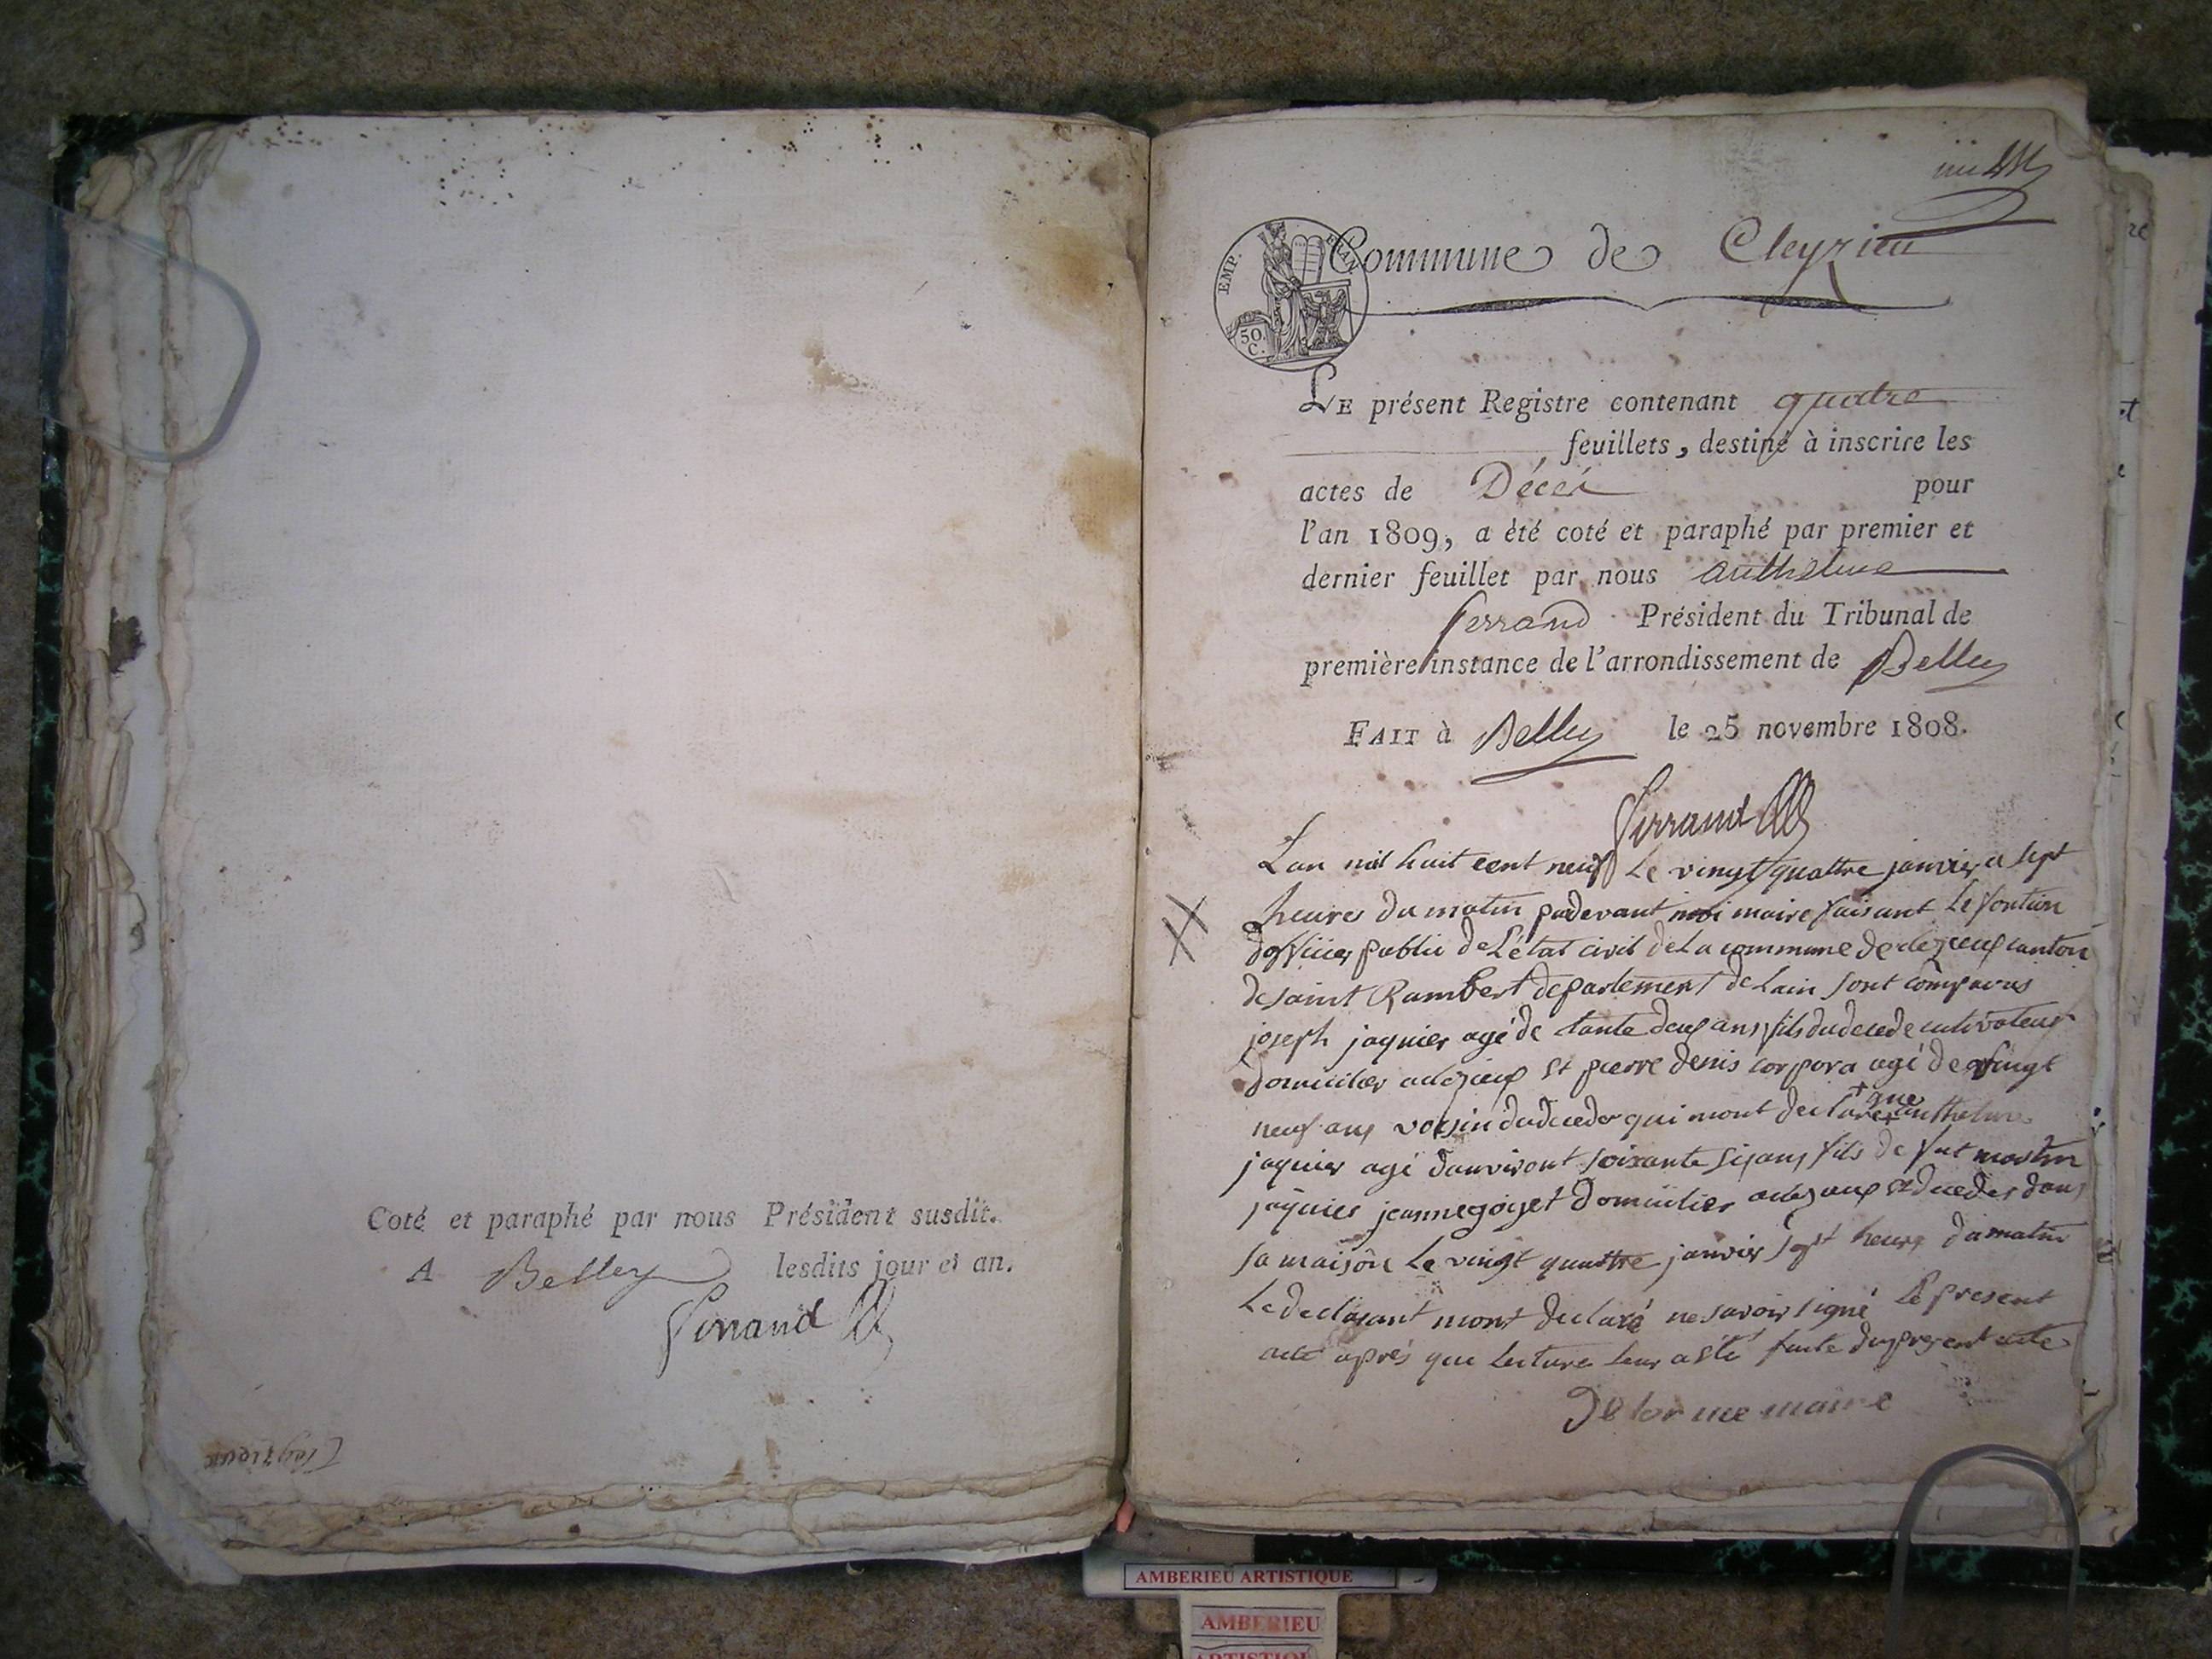 Coté et paraphé par nous Président susdit.
A Belley lesdits jour et an.
Ferrand
Cleyzieux
Commune de Cleyzieu
EMP. FRAN.
50
C.
LE présent Registre contenant quatre
feuillets, destiné à inscrire les
actes de Décès pour
l'an 1809, a été coté et paraphé par premier et
dernier feuillet par nous anthelme
ferrand Président du Tribunal de
première instance de l'arrondissement de Belley
FAIT à Belley le 25 novembre 1808.
Ferrand
Lan mil huit cent neuf Le vingt quattre janvier a sept
heures du matin pardevant moi maire faisant Le fontion
dofficier public de Létat civil de La commune de cleyzieux canton
de saint Rambert departement de Lain sont comparus
joseph jaquier agé de tante deux ans fils du decede cultivateur
domicilier a cleyzieux et pierre denis corpora agé de vingt
neuf ans voisin du deceder qui mont declarer que anthelme
jaquier agé danviront soixante six ans fils de fut martin
jaquier jeanne goyet domicilier a cleyzieux et deceder dans
sa maison Le vingt quattre janvier sept heure du matin
Le declarant mont declaré ne savoir signé Le present
acte aprés que Lecture Leur a été faite du present acte
Delorme maire
AMBERIEU ARTISTIQUE
AMBERIEU
ARTISTIQUE